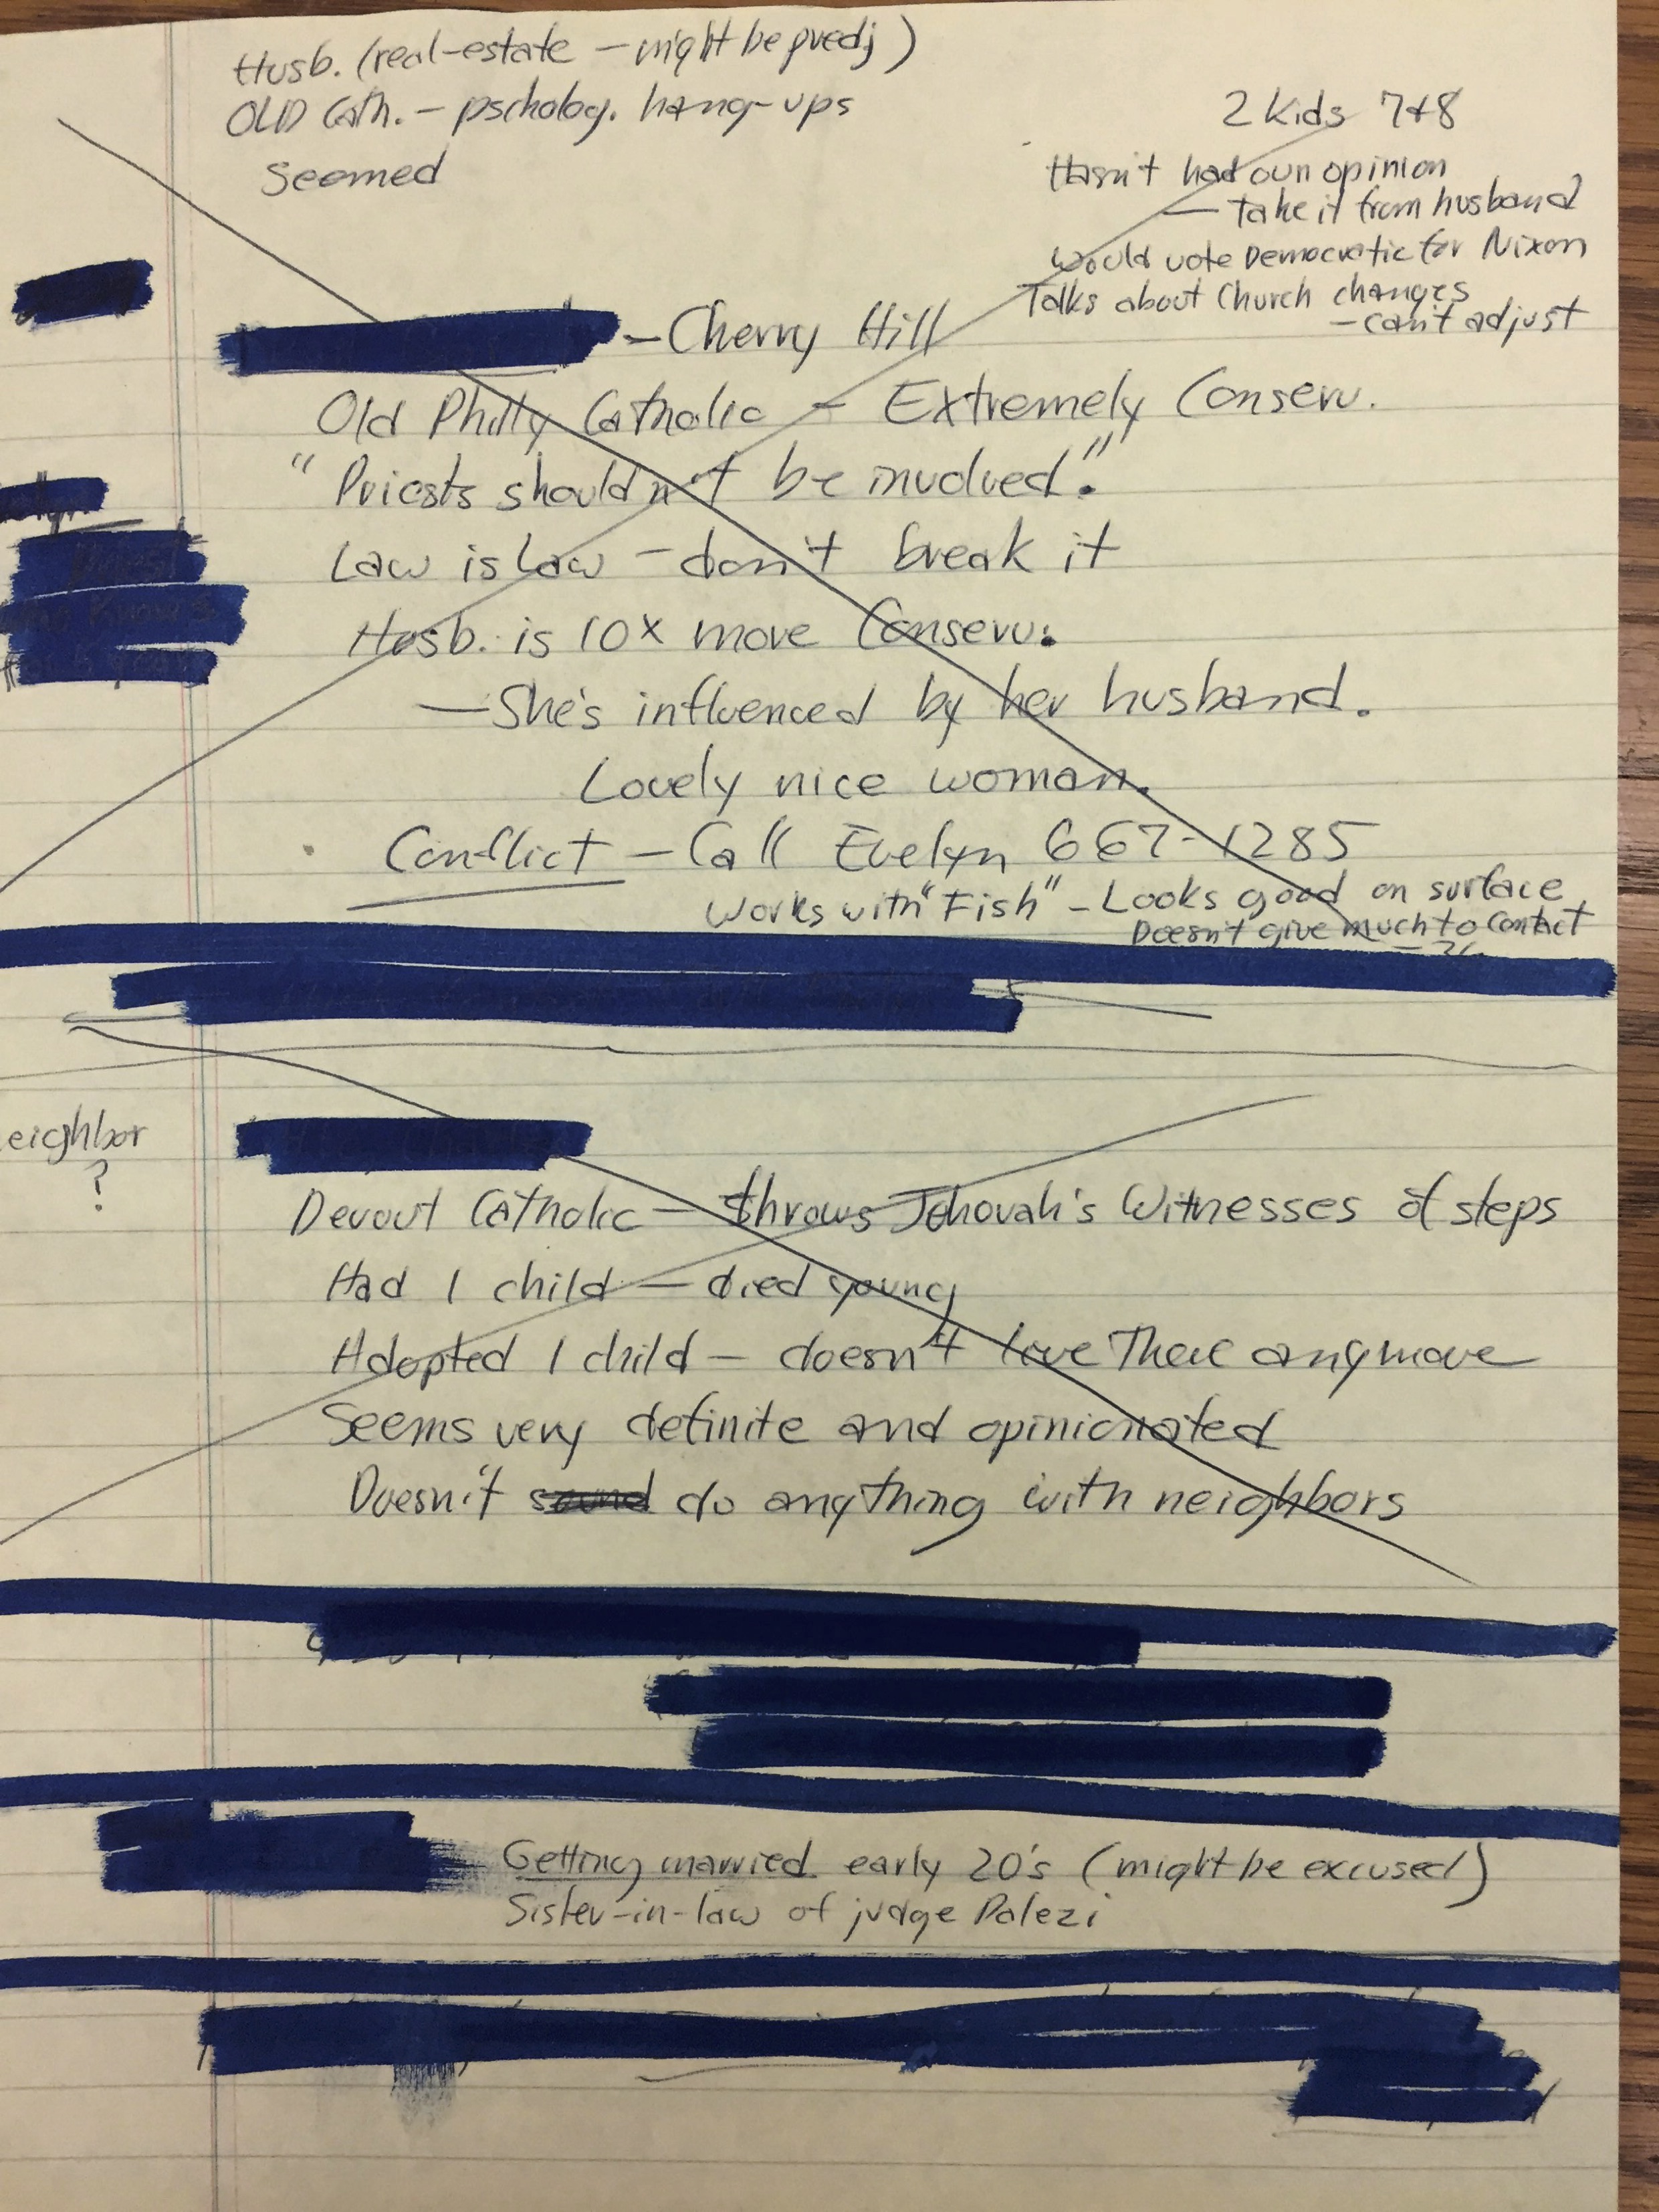 Husb. (real-estate — might be predj)
OLD Cath. — pscholog. hang-ups
Seemed
2 kids 7+8
Hasn't had own opinion
— take it from husband
Would vote Democratic for Nixon
Talks about Church changes
— can't adjust
— Cherry Hill
Old Philly Catholic — Extremely Conserv.
"Priests shouldn't be involved."
Law is Law — don't break it
Husb. is 10x more Conserv.
— She's influenced by her husband.
Lovely nice woman.
Conflict — Call Evelyn 667-1285
Works with "Fish" — Looks good on surface
Doesn't give much to contact
eighbor
?
Devout Catholic — throws Jehovah's Witnesses of steps
Had 1 child — died young
Adopted 1 child — doesn't live there anymore
Seems very definite and opinionated
Doesn't sound do anything with neighbors
Getting married early 20's (might be excused)
Sister-in-law of judge Palezi